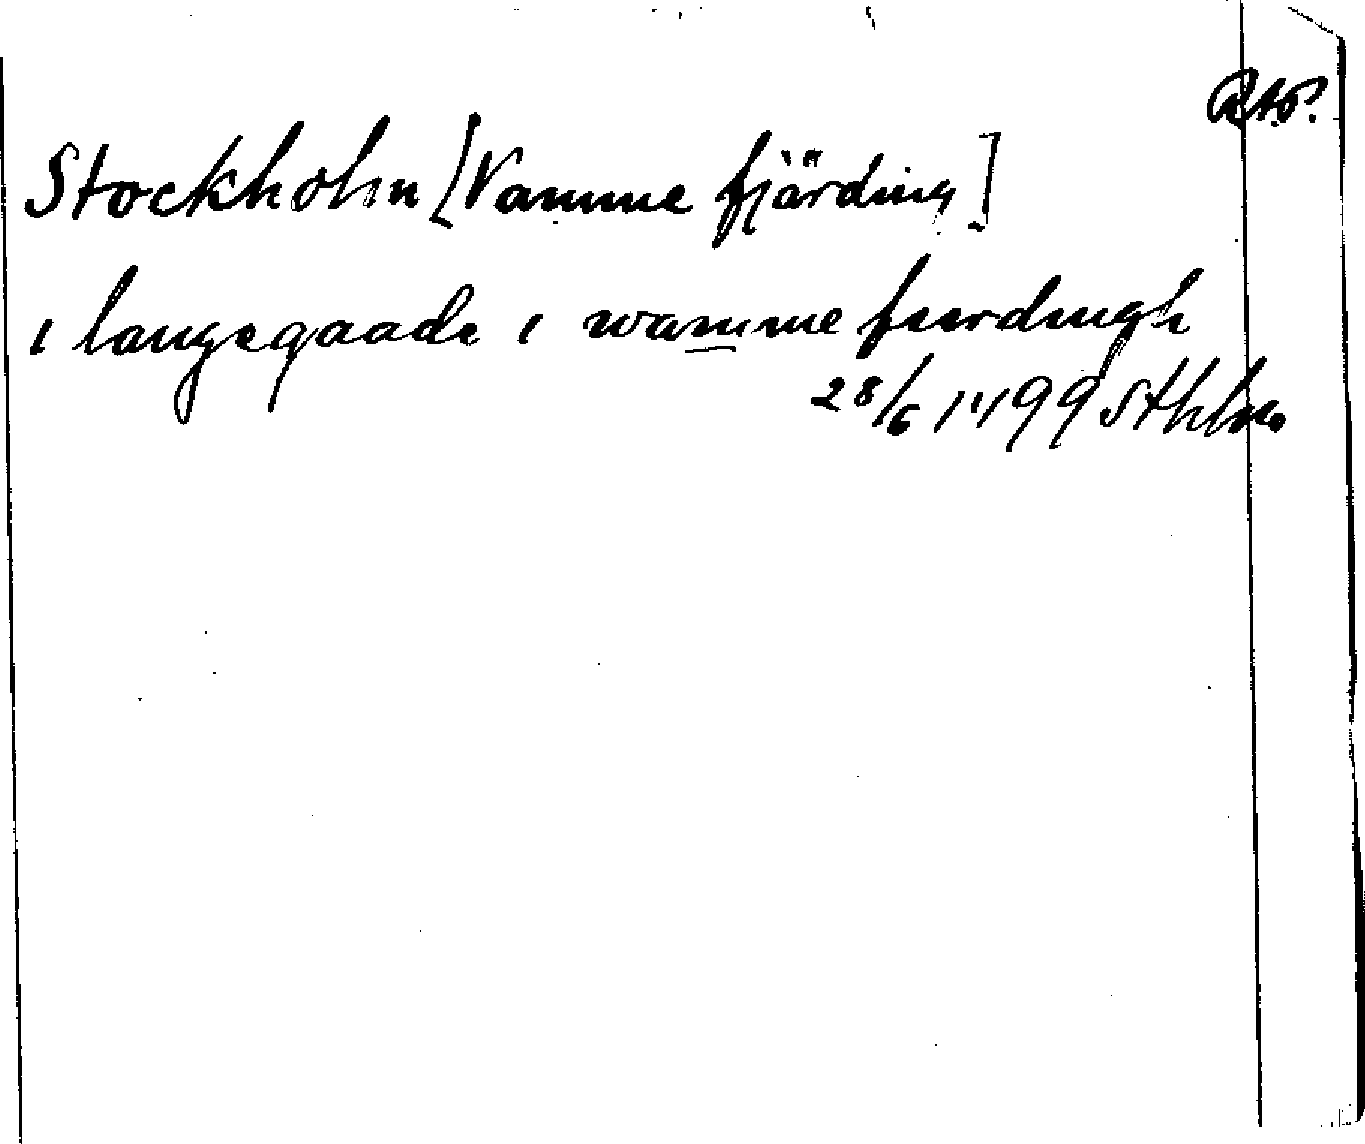 Stockholm [Vamme fjärding]
i langegaade i wamme fierdingh
28/6 1499 Sthlm.